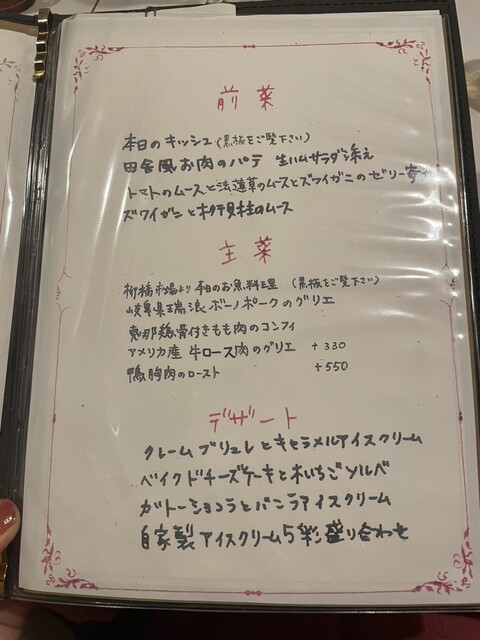 前菜
本日のキッシュ(黒板をご覧下さい)
田舎風お肉のパテ 生ハムサラダ添え
トマトのムースと法蓮草のムースとズワイガニのゼリー寄せ
ズワイガニと帆立貝柱のムース
主菜
柳橋市場より本日のお魚料理 (黒板をご覧下さい)
岐阜県瑞浪ボーノポークのグリエ
恵那鶏骨付きもも肉のコンフィ
アメリカ産 牛ロース肉のグリエ +330
鴨胸肉のロースト +550
デザート
クレームブリュレとキャラメルアイスクリーム
ベイクドチーズケーキと木いちごソルベ
ガトーショコラとバニラアイスクリーム
自家製アイスクリーム5彩盛り合わせ